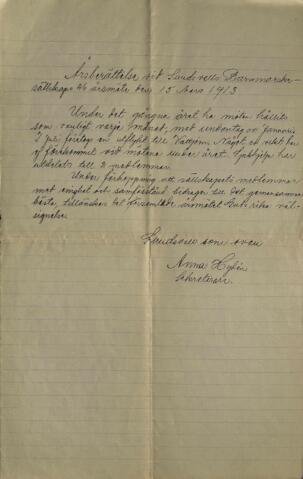 Årsberättelse vid Sundsvalls Barnmorske-
sällskaps årsmöte den 15 Mars 1913
Under det gångna året ha möten hållits
som vanligt varje månad, med undantag av Januari
I Juli företogs en utflykt till Vattjom. Något av vikt har
ej förekommit vid mötena under året. Sjukhjälp har
utbetalts till 2 medlemmar.
Under förhoppning att sällskapets medlemmar
med enighet och samförstånd bidraga till det gemensamma
bästa tillönskas det församlade årsmötet Guds rika väl-
signelse.
Sundsvall som ovan
Anna
Sekreterare